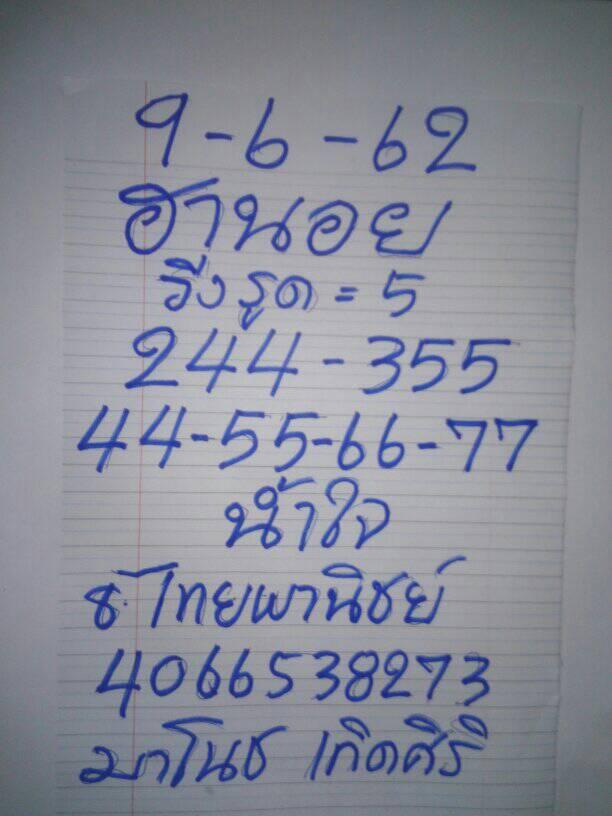 9-6-62
ฮานอย
วิ่งรูด = 5
244-355
44-55-66-77
น้ำใจ
ธ. ไทยพานิชย์
4066538273
มาโนช เกิดศิริ